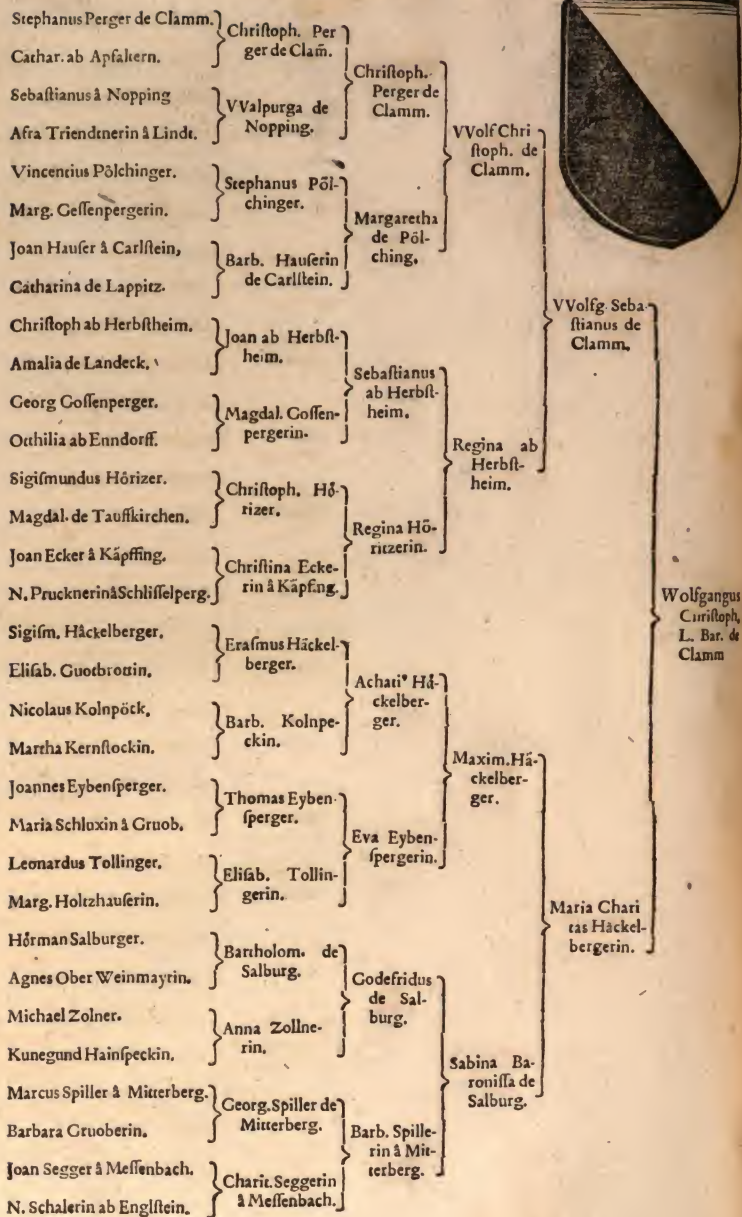 Stephanus Perger de Clamm.
Cathar. ab Apfaltern.
Sebaſtianus â Nopping
Afra Triendtnerin â Lindt.
Vincentius Pölchinger.
Marg. Geſſenpergerin.
Joan Hauſer â Carlſtein,
Catharina de Lappitz.
Chriſtoph ab Herbſtheim.
Amalia de Landeck.
Georg Goſſenperger.
Otthilia ab Enndorff.
Sigiſmundus Hörizer.
Magdal. de Tauffkirchen.
Joan Ecker â Käpffing.
N. Prucknerin â Schliſſelperg.
Sigiſm. Häckelberger.
Eliſab. Guotbrottin.
Nicolaus Kolnpöck.
Martha Kernſtockin.
Joannes Eybenſperger.
Maria Schluxin â Gruob.
Leonardus Tollinger.
Marg. Holtzhauſerin.
Hörman Salburger.
Agnes Ober Weinmayrin.
Michael Zolner.
Kunegund Hainſpeckin.
Marcus Spiller â Mitterberg.
Barbara Gruoberin.
Joan Segger â Meſſenbach.
N. Schalerin ab Englſtein.
Chriſtoph. Per
ger de Clam̃.
VValpurga de
Nopping.
Stephanus Pöl-
chinger.
Barb. Hauſerin
de Carlſtein.
Joan ab Herbſt-
heim.
Magdal. Goſſen-
pergerin.
Chriſtoph. Hö-
rizer.
Chriſtina Ecke-
rin â Käpfing.
Eraſmus Häckel-
berger.
Barb. Kolnpe-
ckin.
Thomas Eyben-
ſperger.
Eliſab. Tollin-
gerin.
Bartholom. de
Salburg.
Anna Zollne-
rin.
Georg. Spiller de
Mitterberg.
Charit. Seggerin
â Meſſenbach.
Chriſtoph.
Perger de
Clamm.
Margaretha
de Pöl-
ching.
Sebaſtianus
ab Herbſt-
heim.
Regina Hö-
ritzerin.
Achati⁹ Hä-
ckelber-
ger.
Eva Eyben-
ſpergerin.
Godefridus
de Sal-
burg.
Barb. Spille-
rin â Mit-
terberg.
VVolf Chri
ſtoph. de
Clamm.
Regina ab
Herbſt-
heim.
Maxim. Hä-
ckelber-
ger.
Sabina Ba-
roniſſa de
Salburg.
VVolfg. Seba-
ſtianus de
Clamm.
Maria Chari
tas Häckel-
bergerin.
Wolfgangus
Chriſtoph,
L. Bar. de
Clamm